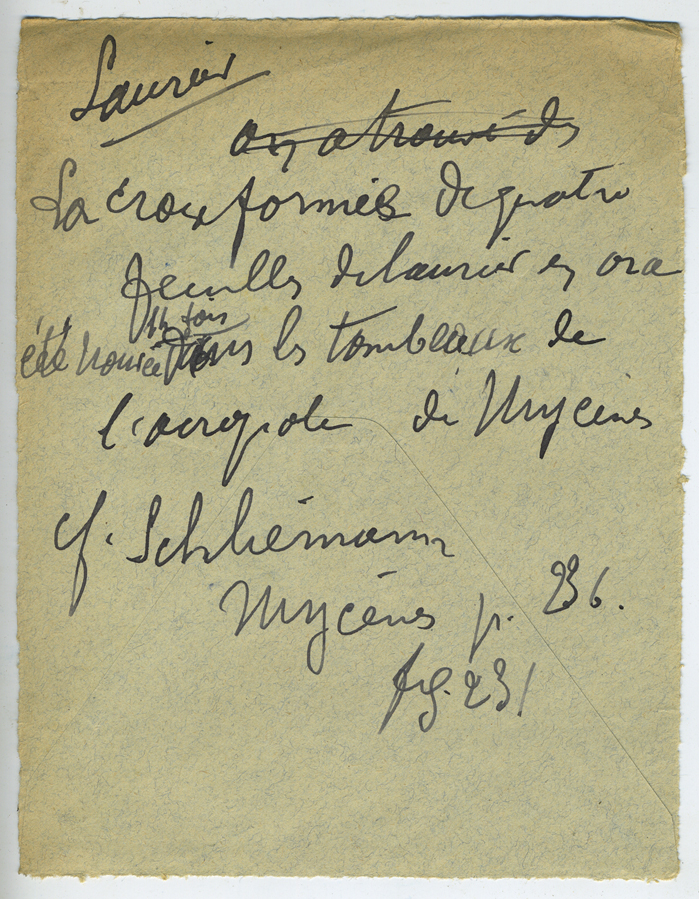 Laurier
on a trouvé des
La croix formée de quatre
feuilles de laurier en or a
fois
été trouvée dans les tombeaux de
l'acropole de Mycènes
cf. Schliemann
Mycènes p. 236.
fig. 231